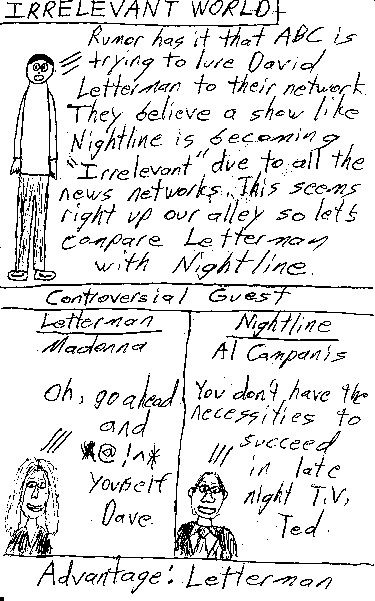 IRRELEVANT WORLD
Rumor has it that ABC is
trying to lure David
Letterman to their network.
They believe a show like
Nightline is becoming
"Irrelevant" due to all the
news networks. This seems
right up our alley so let's
compare Letterman
with Nightline.
Controversial Guest
Letterman
Madonna
Oh, go ahead
and
*@!^*
yourself
Dave.
Nightline
Al Campanis
You don't have the
necessities to
succeed
in late
night T.V,
Ted.
Advantage: Letterman